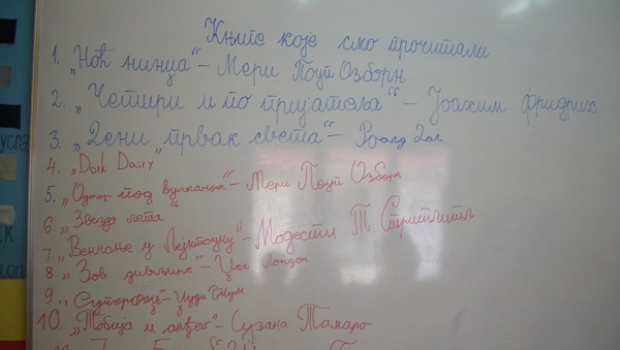 Књиге које смо прочитали
1. „Ноћ нинџа“ – Мери Поуп Озборн
2. „Четири и по пријатеља“ – Јоахим Фридрих
3. „Дени првак света“ – Роалд Дал
4. „Dork Dairy“
5. „Одмор под вулканом“ – Мери Поуп Озборн
6. „Звезда лета“
7. „Венчање у – Модести Т.
8. „Зов дивљине“ – Џек Лондон
9. „Суперфаџ“ – Џуди Блум
10. „Тобија и анђео“ – Сузана Тамаро